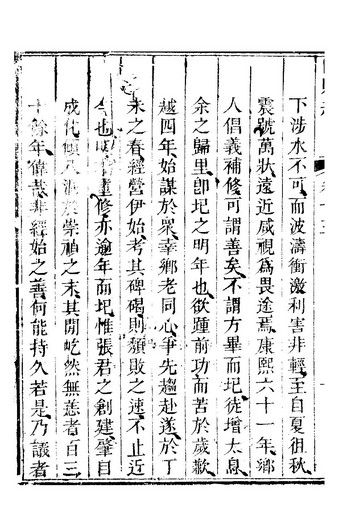 下涉水不可而波濤衝激利害非輕至自夏徂秋
震號萬狀遠近咸視爲畏途焉康熙六十一年鄉
人倡義補修可謂善矣不謂方畢而圯徒增太息
余之歸里卽圯之明年也欲踵前功而苦於歲歉
越四年始謀於衆幸鄉老同心爭先趨赴遂於丁
未之春經營伊始考其碑碣則頽敗之速不止近
今也明 重修亦逾年而圯惟張君之創建肇自
成化 於崇禎之末其閒屹然無恙者百三
十餘年偉哉非經始之善何能持久若是乃議者